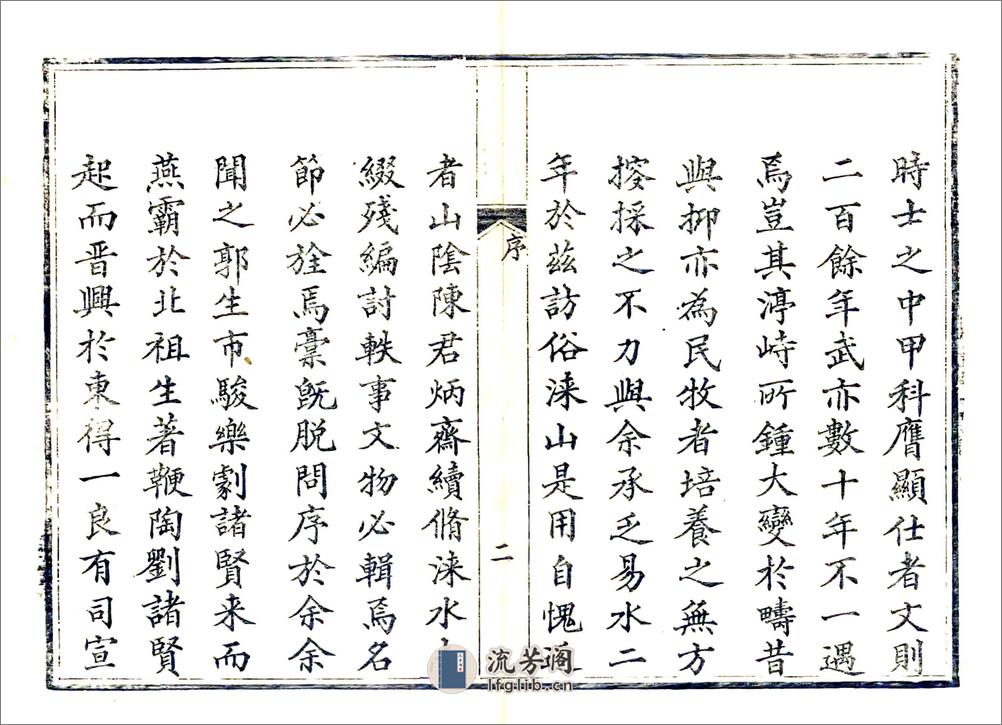 時士之中甲科膺顯仕者文則
二百餘年武亦數十年不一遇
焉豈其渟峙所鍾大變於疇昔
與抑亦為民牧者培養之無方
搲採之不力與余承乏易水二
年於茲訪俗淶山是用自愧
序
二
者山陰陳君炳齋續脩淶水
綴殘編討軼事文物必輯焉名
節必詮焉稾旣脱問序於余余
聞之郭生市駿樂劇諸賢来而
燕霸於北祖生著鞭陶劉諸賢
起而晋興於東得一良有司宣
流芳阁
lfglib.cn